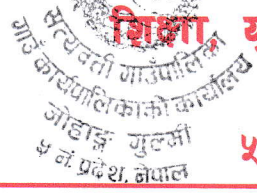 शिक्षा, यु
सत्यवती गाउँपालिका
गाउँ कार्यपालिकाको कार्यालय
जोहाङ्ग गुल्मी
५ नं. प्रदेश, नेपाल
५